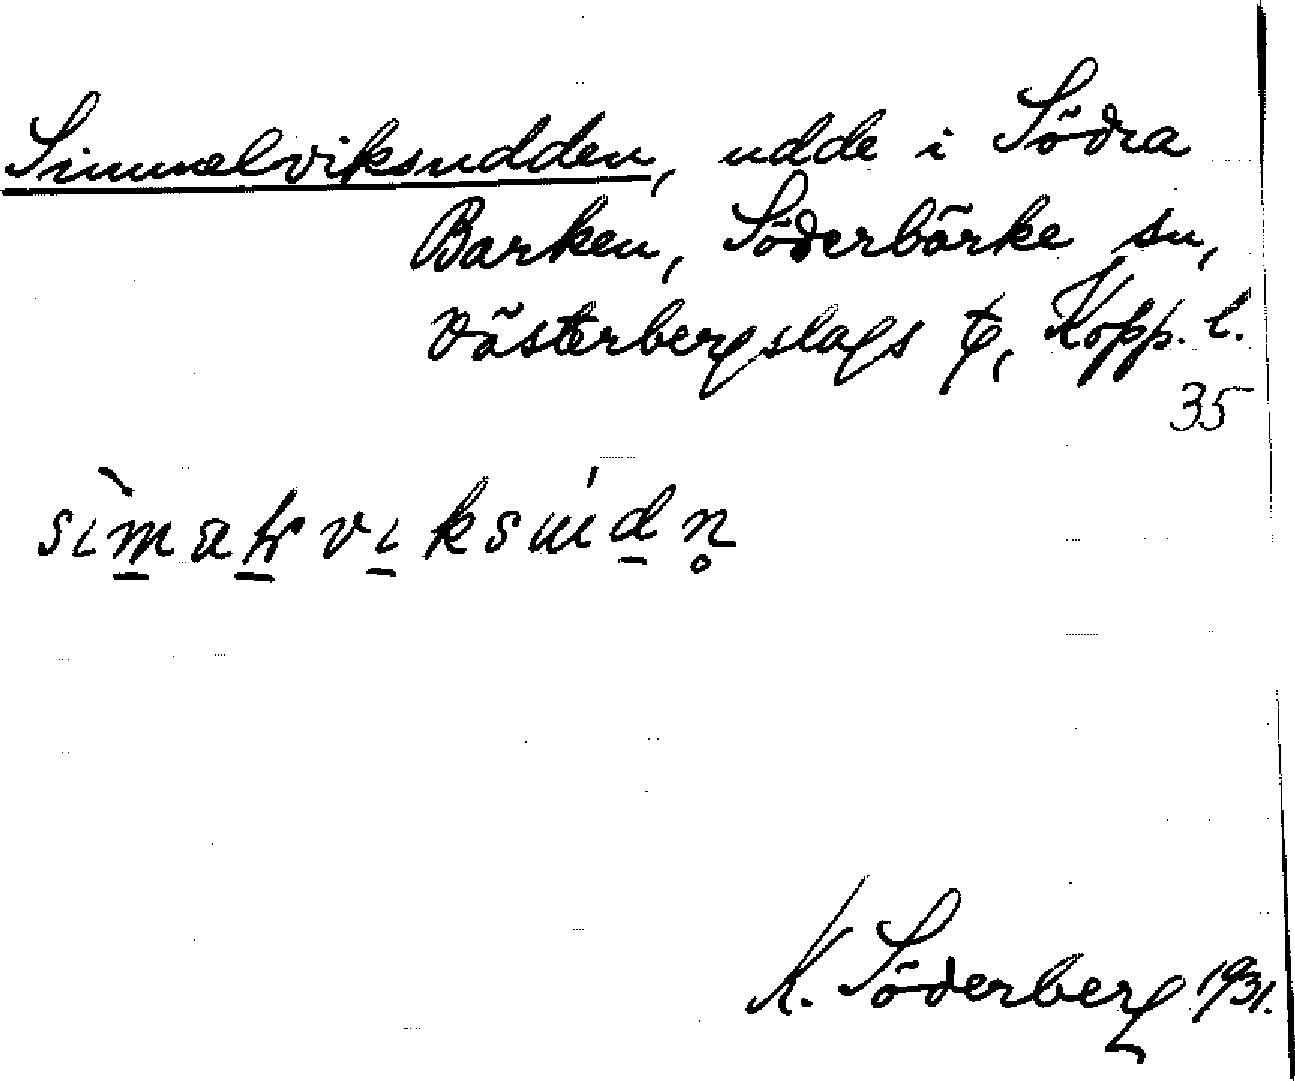 Simmelviksudden, udde i Södra
Barken, Söderbärke sn,
Västerbergslags t, Kopp. l.
35
K. Söderberg 1931.